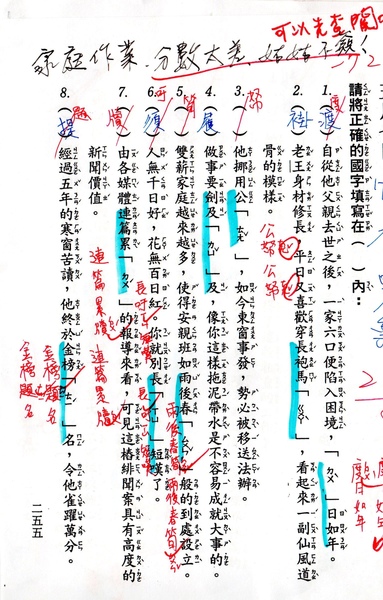 可以先查閱
家庭作業．分數太差，姑姑不簽！
請將正確的國字填寫在（ ）內：
1.（渡）自從他父親去世之後，一家六口便陷入困境，「ㄉㄨˋ」日如年。
度
度日如年
2.（褂）老王身材修長，平日又喜歡穿袍馬「ㄍㄨㄚˋ」，看起來一副仙風道
骨的模樣。
公帑
公帑
3.（ ）他挪用公「ㄊㄤˇ」，如今東窗事發，勢必被移送法辦。
帑
4.（屨）做事要劍及「ㄐㄩˋ」及，像你這樣拖泥帶水是不容易成就大事的。
5.（ ）雙薪家庭越來越多，使得安親班如雨後春「ㄙㄨㄣˇ」般的到處設立。
筍
雨後春筍
雨後春筍
6.（ ）人無千日好，花無百日紅。你就別長「ㄒㄩ」短嘆了。
吁
7.（牘）由各媒體連篇累「ㄉㄨˊ」的報導來看，可見這樁緋聞案具有高度的
新聞價值。
連篇累牘
連篇累牘
8.（提）經過五年的寒窗苦讀，他終於金榜「ㄊㄧˊ」名，令他雀躍萬分。
題
金榜題名
金榜題名
二五五